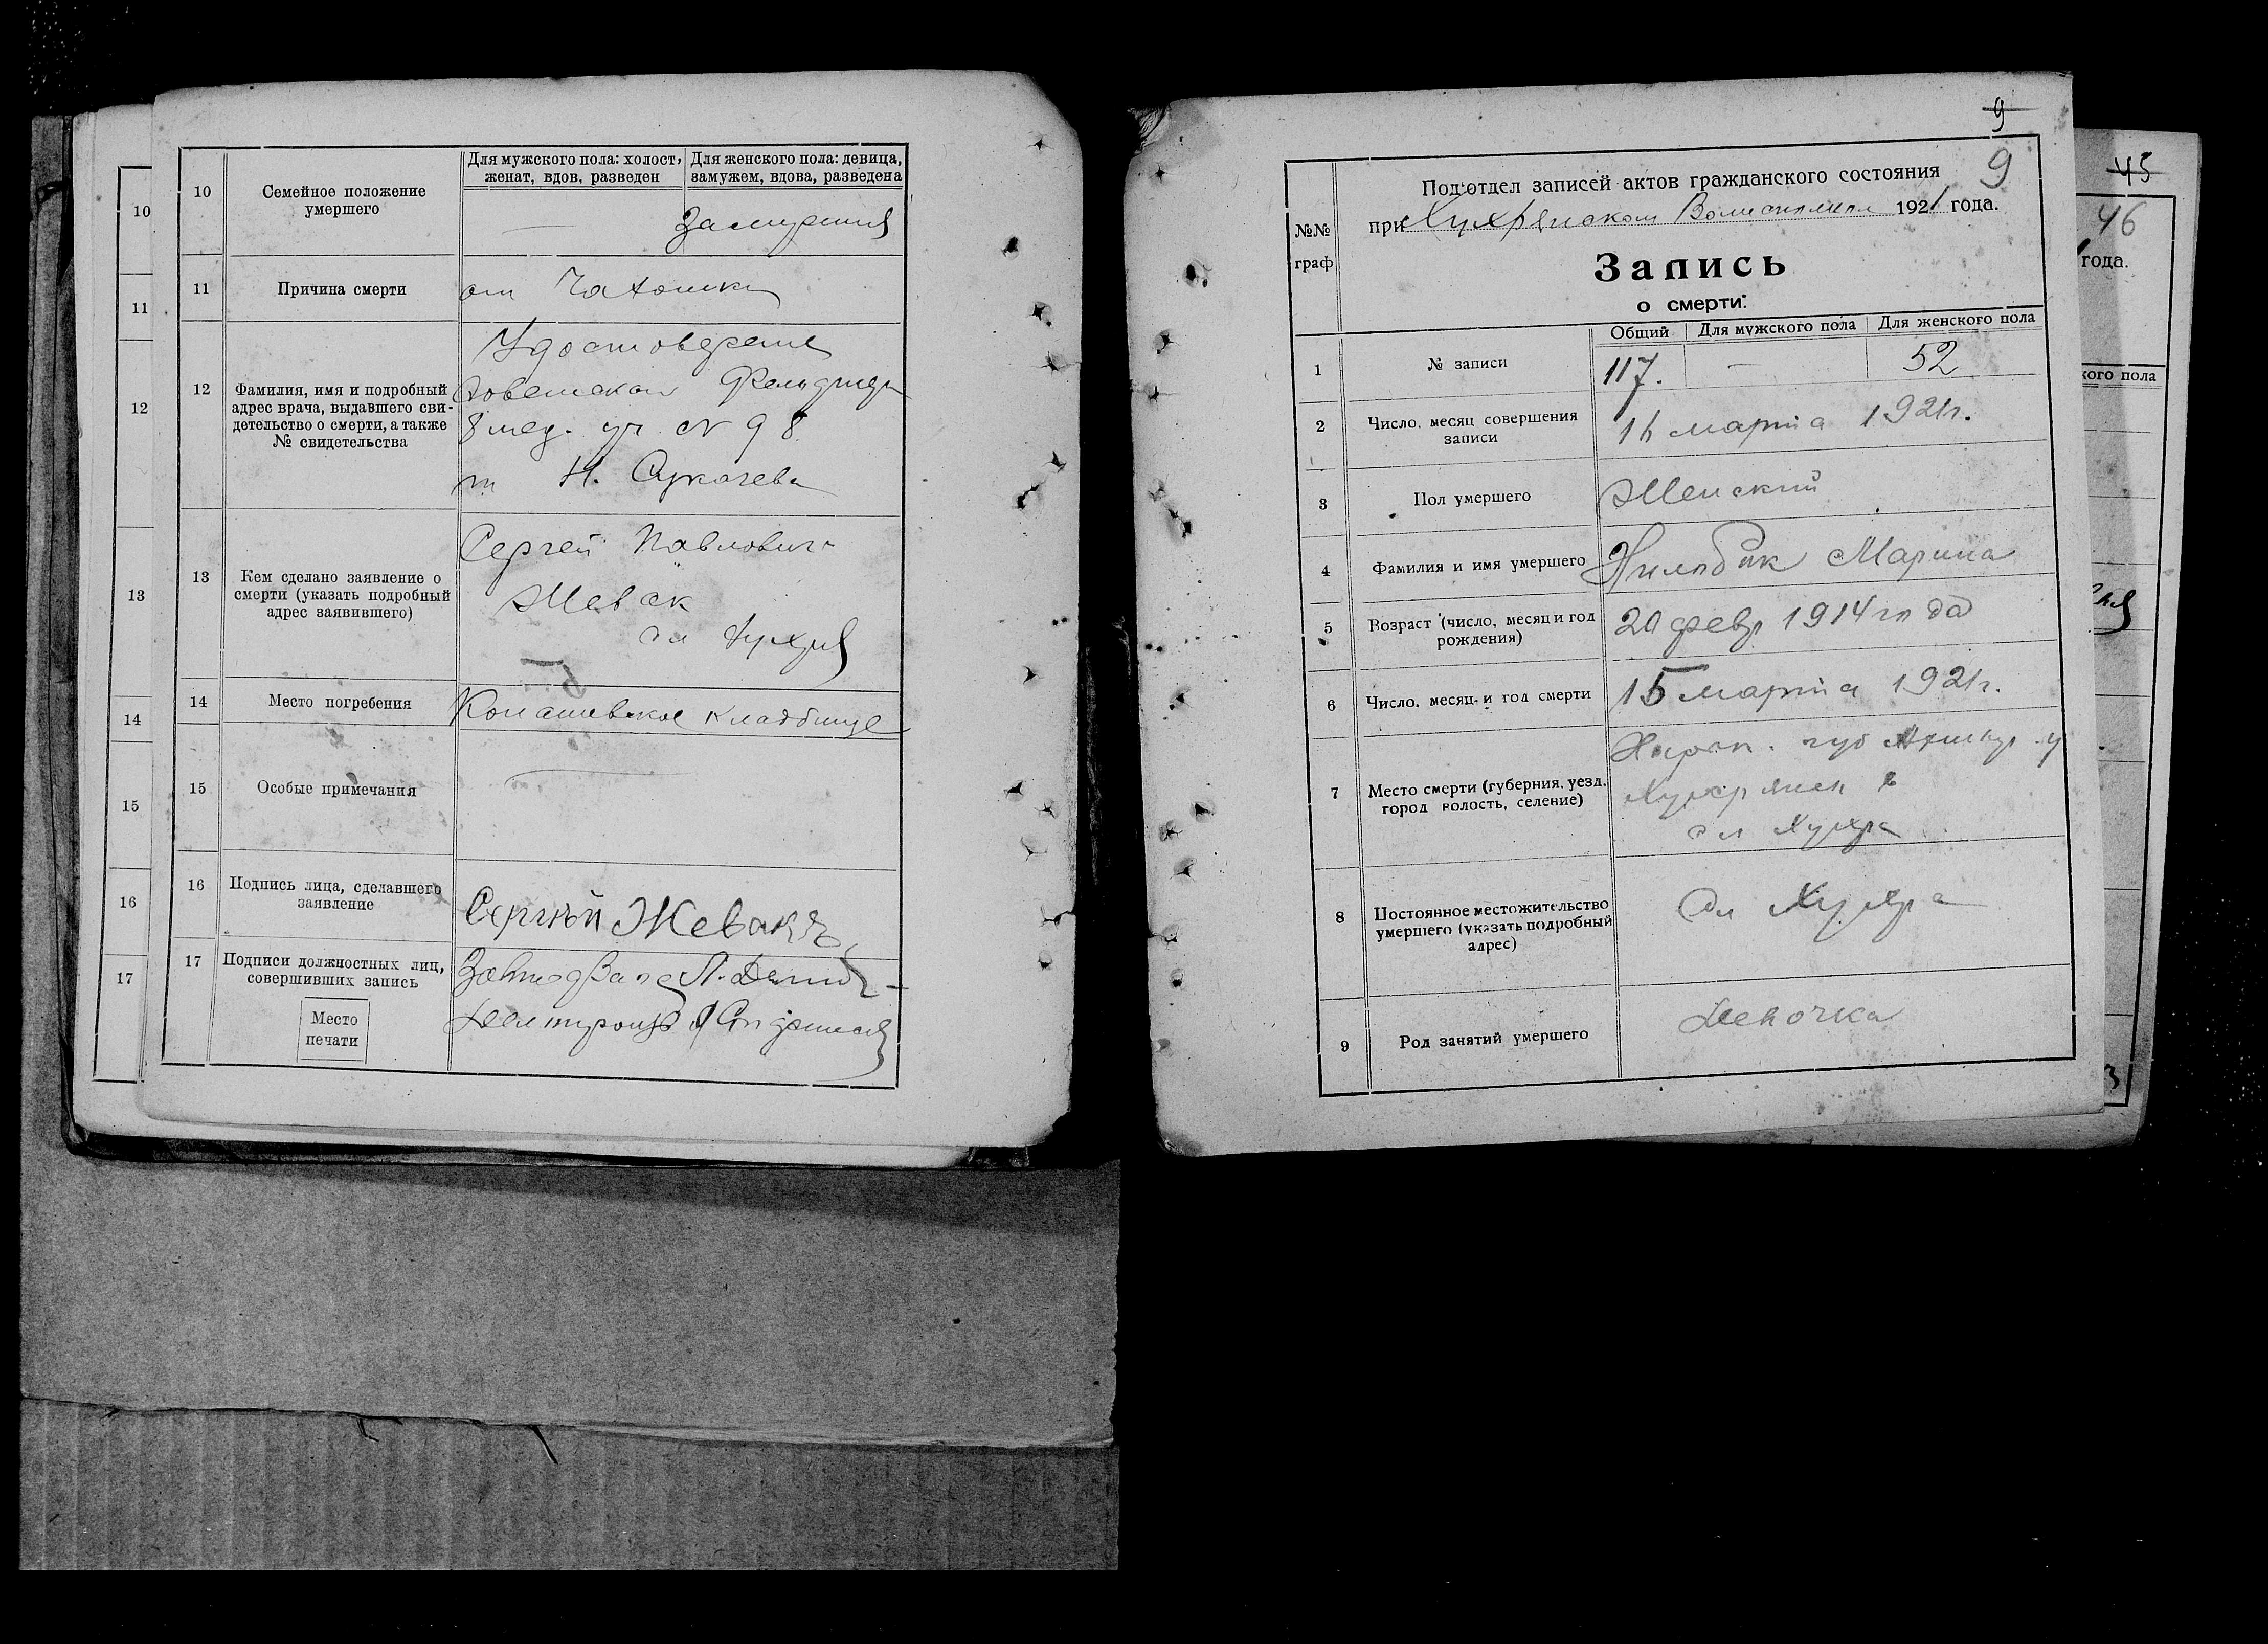 10
11
12
13
14
15
16
17
10
Семейное положение
умершего
Для мужского пола: холост,
женат, вдов, разведен
Для женского пола: девица,
замужем, вдова, разведена
—
11
Причина смерти
от Чахотки
12
Фамилия, имя и подробный
адрес врача, выдавшего сви-
детельство о смерти, а также
№ свидетельства
8 мед. уч. № 98
Н. Сукачева
13
Кем сделано заявление о
смерти (указать подробный
адрес заявившего)
Сергей Павлович
Жевак
14
Место погребения
кладбище
15
Особые примечания
16
Подпись лица, сделавшего
заявление
Сергѣй Жевакъ
17
Подписи должностных лиц,
совершивших запись
Место
печати
9
9
№№
граф
Подотдел записей актов гражданского состояния
при 1921 года.
Запись
о смерти:
Общий
Для мужского пола
Для женского пола
1
№ записи
117.
—
52
2
Число, месяц совершения
записи
16 марта 1921г.
3
Пол умершего
Женский
4
Фамилия и имя умершего
Марина
5
Возраст (число, месяц и год
рождения)
20 февр 1914 года
6
Число, месяц и год смерти
15 марта 1921г.
7
Место смерти (губерния, уезд,
город волость, селение)
Харьк. губ
сл Хухра
8
Постоянное местожительство
умершего (указать подробный
адрес)
Сл Хухра
9
Род занятий умершего
Девочка
45
46
года.
кого пола